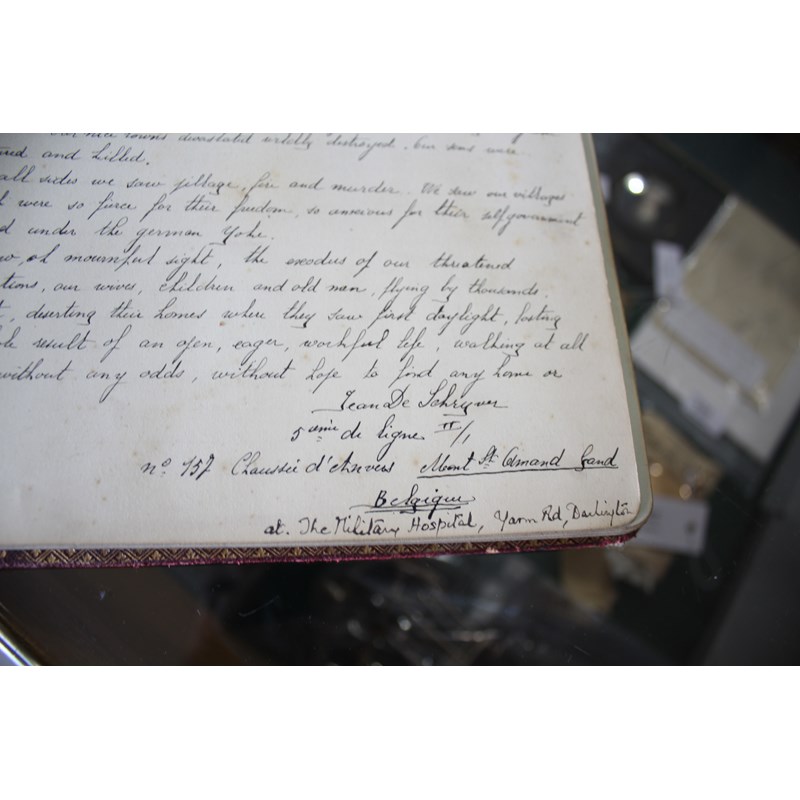 our nice towns devastated wildly destroyed, our sons were
and killed.
all sides we saw pillage, fire and murder. We saw our villages
were so fierce for their freedom, so anxcious for their selfgovernment
under the german Yoke.
oh mournful sight, the exodus of our threatened
our wives, children and old men, flying by thousands.
deserting their homes where they saw first daylight, losting
result of an open, eager, workful life, walking at all
without any odds, without hope to find any home or
Jean De Schryver
5 ième de ligne II/1
n° 157 Chaussée d'Anvers Mont St. Amand Gand
Belgique
at. The Military Hospital, Yarm Rd, Darlington